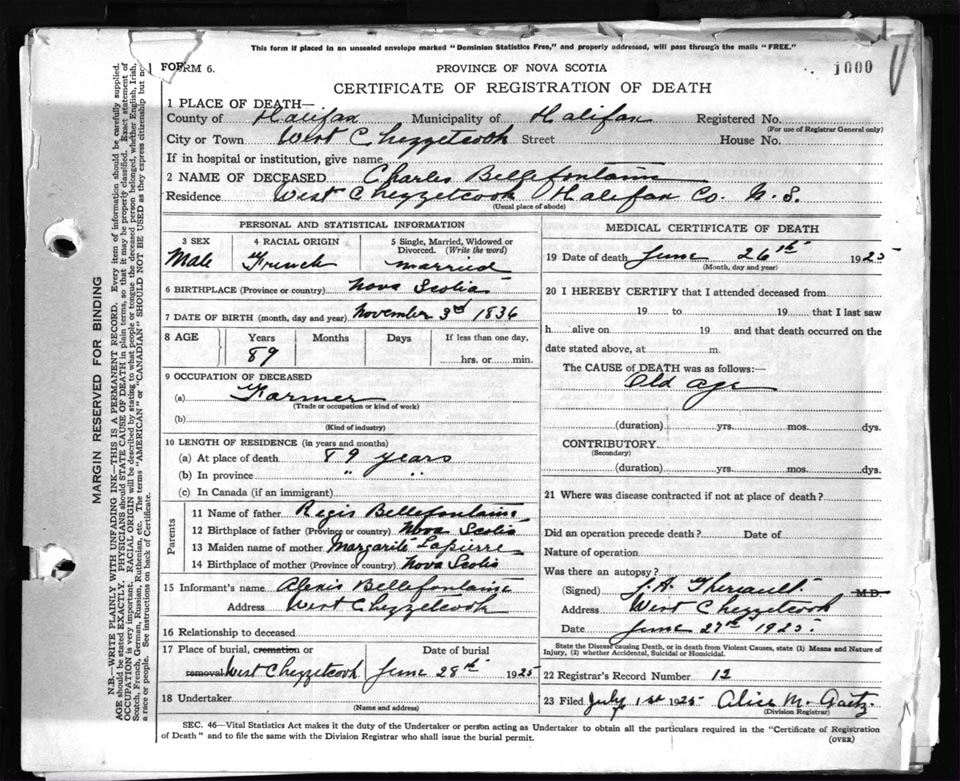 This form if placed in an unsealed envelope marked "Dominion Statistics Free," and properly addressed, will pass through the mails "FREE."
FORM 6.
PROVINCE OF NOVA SCOTIA
1000
CERTIFICATE OF REGISTRATION OF DEATH
1 PLACE OF DEATH—
County of Halifax Municipality of Halifax Registered No.
(For use of Registrar General only)
City or Town West Chezzetcook Street House No.
If in hospital or institution, give name
2 NAME OF DECEASED Charles Bellefontaine
Residence West Chezzetcook Halifax Co. N. S.
(Usual place of abode)
PERSONAL AND STATISTICAL INFORMATION
3 SEX 4 RACIAL ORIGIN 5 Single, Married, Widowed or
Divorced. (Write the word)
Male French married
6 BIRTHPLACE (Province or country) Nova Scotia
7 DATE OF BIRTH (month, day and year) November 3rd 1836
8 AGE Years Months Days If less than one day,
89 hrs. or min.
9 OCCUPATION OF DECEASED
(a) Farmer
(Trade or occupation or kind of work)
(b)
(Kind of industry)
10 LENGTH OF RESIDENCE (in years and months)
(a) At place of death 89 years
(b) In province " "
(c) In Canada (if an immigrant)
Parents
11 Name of father Regis Bellefontaine
12 Birthplace of father (Province or country) Nova Scotia
13 Maiden name of mother Margarite Lapierre
14 Birthplace of mother (Province or country) Nova Scotia
15 Informant's name Alexis Bellefontaine
Address West Chezzetcook
16 Relationship to deceased
17 Place of burial, cremation or Date of burial
removal West Chezzetcook June 28th 1925
18 Undertaker
(Name and address)
MEDICAL CERTIFICATE OF DEATH
19 Date of death June 26th 1925
(Month, day and year)
20 I HEREBY CERTIFY that I attended deceased from
19 to 19 that I last saw
h alive on 19 and that death occurred on the
date stated above, at m.
The CAUSE OF DEATH was as follows:—
Old age
(duration) yrs. mos. dys.
CONTRIBUTORY.
(Secondary)
(duration) yrs. mos. dys.
21 Where was disease contracted if not at place of death?
Did an operation precede death? Date of
Nature of operation
Was there an autopsy?
(Signed) J. A. Theriault M.D.
Address West Chezzetcook
Date June 27th 1925
State the Disease causing Death, or in death from Violent Causes, state (1) Means and Nature of
Injury, (2) whether Accidental, Suicidal or Homicidal.
22 Registrar's Record Number 12
23 Filed July 1st 1925 Alice M. Gaetz
(Division Registrar)
SEC. 46—Vital Statistics Act makes it the duty of the Undertaker or person acting as Undertaker to obtain all the particulars required in the "Certificate of Registration
of Death" and to file the same with the Division Registrar who shall issue the burial permit.
(OVER)
MARGIN RESERVED FOR BINDING
N.B.—WRITE PLAINLY WITH UNFADING INK—THIS IS A PERMANENT RECORD. Every item of information should be carefully supplied.
AGE should be stated EXACTLY. PHYSICIANS should STATE CAUSE OF DEATH in plain terms, so that it may be properly classified. Exact statement of
OCCUPATION is very important. RACIAL ORIGIN will be described by stating to what people or tongue the deceased person belonged, whether English, Irish,
Scotch, French, German, Russian, Ruthenian, etc. The terms "AMERICAN" or "CANADIAN" SHOULD NOT BE USED as they express citizenship but not
a race or people. See instructions on back of Certificate.